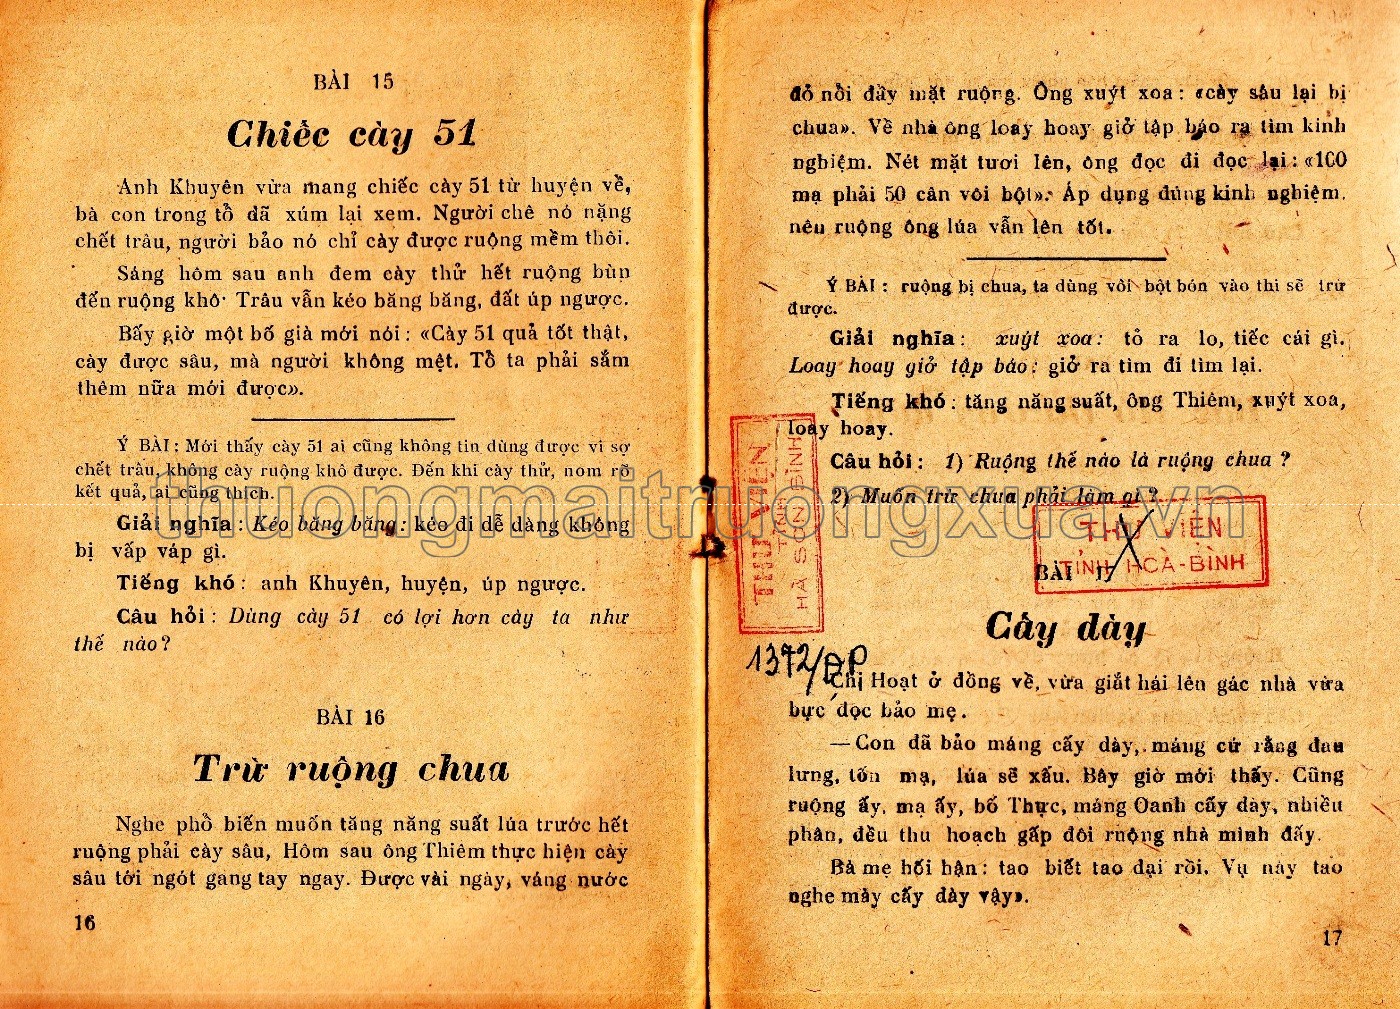 BÀI 15
Chiếc cày 51
Anh Khuyên vừa mang chiếc cày 51 từ huyện về,
bà con trong tổ đã xúm lại xem. Người chê nó nặng
chết trâu, người bảo nó chỉ cày được ruộng mềm thôi.
Sáng hôm sau anh đem cày thử hết ruộng bùn
đến ruộng khô· Trâu vẫn kéo băng băng, đất úp ngược.
Bấy giờ một bố già mới nói : «Cày 51 quả tốt thật,
cày được sâu, mà người không mệt. Tổ ta phải sắm
thêm nữa mới được».
Ý BÀI : Mới thấy cày 51 ai cũng không tin dùng được vì sợ
chết trâu, không cày ruộng khô được. Đến khi cày thử, nom rõ
kết quả, ai cũng thích.
Giải nghĩa : Kéo băng băng : kéo đi dễ dàng không
bị vấp váp gì.
Tiếng khó : anh Khuyên, huyện, úp ngược.
Câu hỏi : Dùng cày 51 có lợi hơn cày ta như
thế nào ?
BÀI 16
Trừ ruộng chua
Nghe phổ biến muốn tăng năng suất lúa trước hết
ruộng phải cày sâu, Hôm sau ông Thiêm thực hiện cày
sâu tới ngót gang tay ngay. Được vài ngày, váng nước
16
đỏ nổi đầy mặt ruộng. Ông xuýt xoa : «cày sâu lại bị
chua». Về nhà ông loay hoay giở tập báo ra tìm kinh
nghiệm. Nét mặt tươi lên, ông đọc đi đọc lại : «100
mạ phải 50 cân vôi bột». Áp dụng đúng kinh nghiệm.
nêu ruộng ông lúa vẫn lên tốt.
Ý BÀI : ruộng bị chua, ta dùng vôi bột bón vào thì sẽ trừ
được.
Giải nghĩa : xuýt xoa : tỏ ra lo, tiếc cái gì.
Loay hoay giở tập báo : giở ra tìm đi tìm lại.
Tiếng khó : tăng năng suất, ông Thiêm, xuýt xoa,
loay hoay.
Câu hỏi : 1) Ruộng thế nào là ruộng chua ?
2) Muốn trừ chua phải làm gì ?
THƯ VIỆN
TỈNH
HÀ SƠN BÌNH
THƯ VIỆN
TỈNH HOÀ-BÌNH
BÀI 17
Cấy dày
1372/ĐP
Chị Hoạt ở đồng về, vừa giắt hái lên gác nhà vừa
bực dọc bảo mẹ.
— Con đã bảo máng cấy dày, máng cứ rằng đau
lưng, tốn mạ, lúa sẽ xấu. Bây giờ mới thấy. Cũng
ruộng ấy, mạ ấy, bố Thực, máng Oanh cấy dày, nhiều
phân, đều thu hoạch gấp đôi ruộng nhà mình đấy.
Bà mẹ hối hận : tao biết tao dại rồi. Vụ này tao
nghe mày cấy dày vậy».
17
thuongmaitruongxua.vn